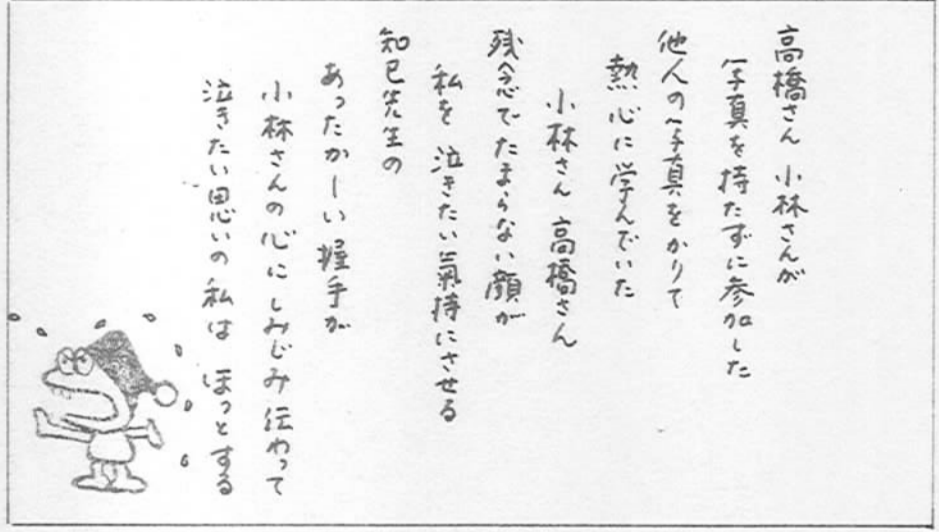 高橋さん 小林さんが
写真を持たずに参加した
他人の写真をかりて
熱心に学んでいた
小林さん 高橋さん
残念でたまらない顔が
私を 泣きたい氣持にさせる
知已先生の
あったかーい 握手が
小林さんの心にしみじみ伝わって
泣きたい思いの私は ほっとする